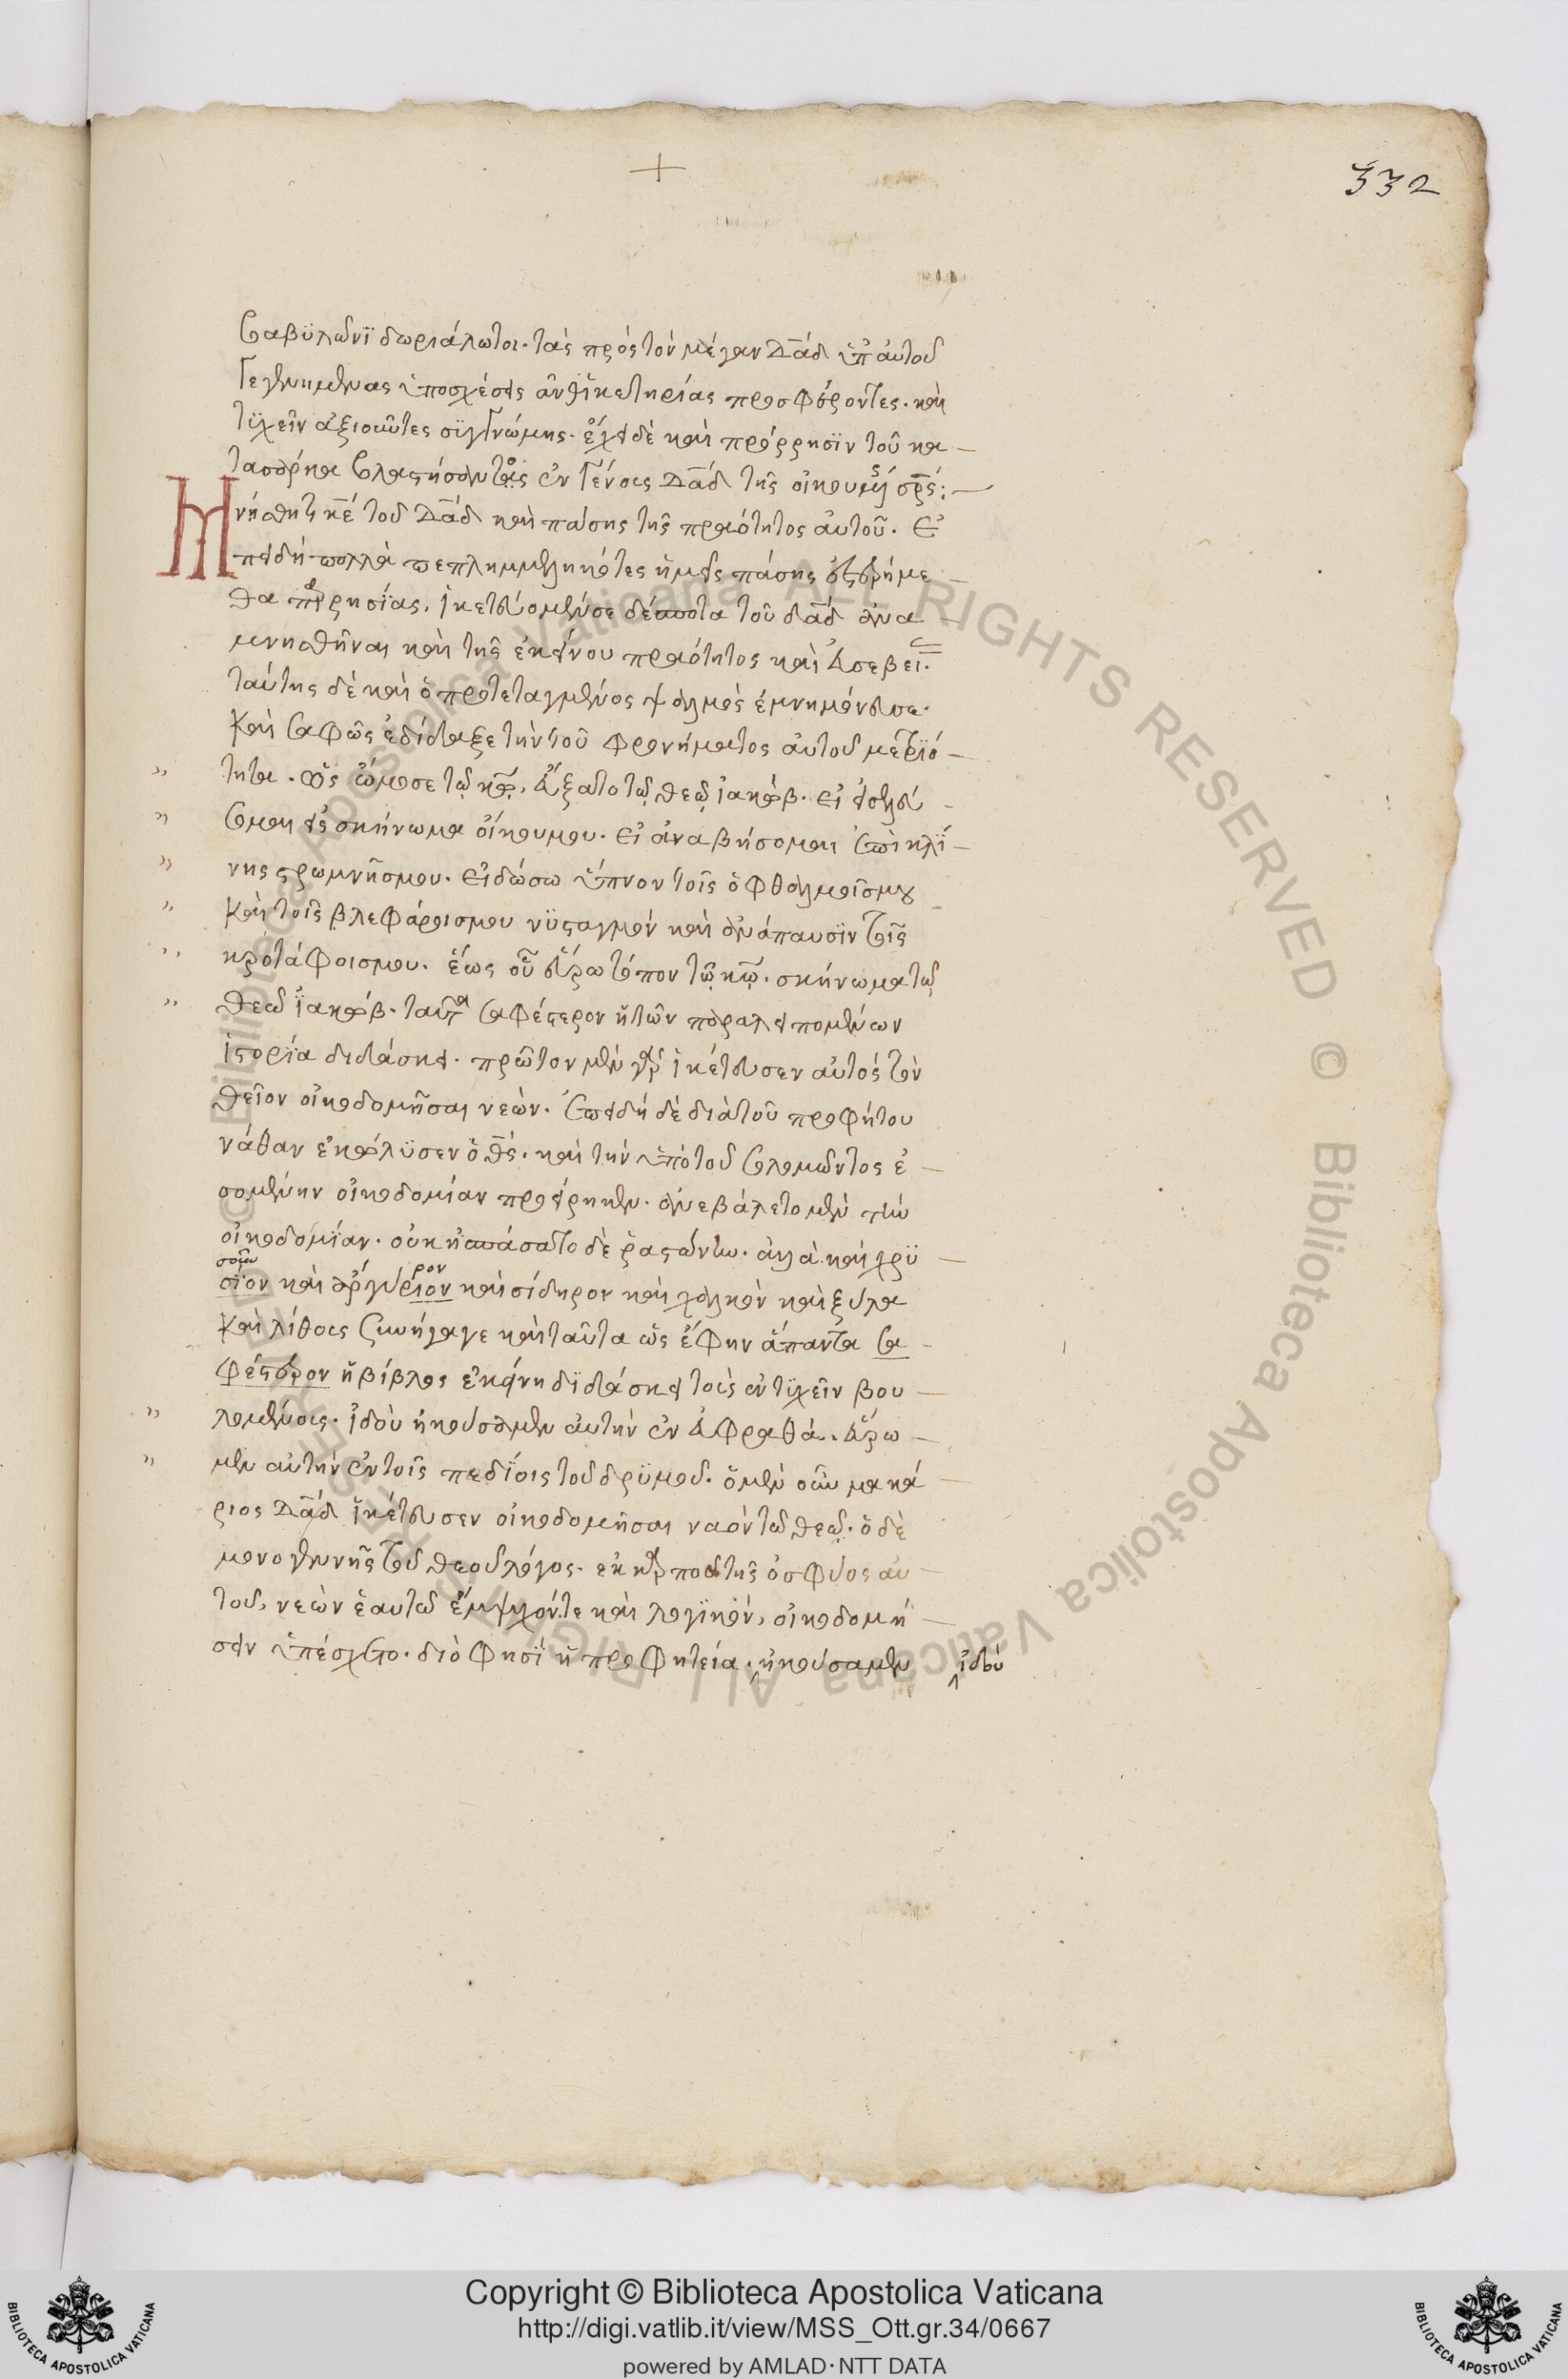 332
βαβϋλῶνϊ δωριάλωτοι. τὰς πρὸς τὸν μέγαν δαδ ὑπ αὐτοῦ
γεγενημένας ὑποσχέσεις ἀνθ ἱκετηρίας προσφέροντες. καὶ
τϋχεῖν ἀξιοῦντες σϋγγνώμης. ἔχει δὲ καὶ πρόρρησϊν τοῦ κα
τα σάρκα βλαστήσαντος ἐν γένους δαδ τῆς οἰκουμένης σρς:
Μνήσθητι κε τοῦ δαδ καὶ πάσης τῆς πραότητος αὐτοῦ. ἐ
πειδὴ πολλὰ πεπλημμεληκότες ἡμεῖς πάσης ἐστερήμε
θα παρρησίας, ἱκετεύομέν σε δέσποτα τοῦ δαδ ἀνα
μνησθῆναι καὶ τῆς ἐκείνου πραότητος καὶ εὐσεβεί.
ταύτης δὲ καὶ ὁ προτεταγμένος ψαλμὸς ἐμνημόνευσε.
καὶ σαφῶς ἐδίδαξε τὴν τοῦ φρονήματος αὐτοῦ μετρϊό
τητα. ὡς ὤμοσε τῷ κω, εὔξατο τῷ θεῷ ἰακώβ. εἰ εἰσελεύ
σομαι εἰς σκήνωμα οἴκου μου. εἰ ἀναβήσομαι ἐπὶ κλϊ
νης στρωμνῆς μου. εἰ δώσω ὕπνον τοῖς ὀφθαλμοῖς μου
καὶ τοῖς βλεφάροις μου νϋσταγμὸν καὶ ἀνάπαυσϊν τοῖς
κροτάφοις μου. ἕως οὗ εὕρω τόπον τῷ κω. σκήνωμα τῷ
θεῷ ϊακώβ. ταῦτα σαφέστερον ἡ τῶν παραλειπομένων
ἱστορία διδάσκει. πρῶτον μὲν γὰρ ἱκέτευσεν αὐτὸς τὸν
θεῖον οἰκοδομῆσαι νεών. ἐπειδὴ δὲ διὰ τοῦ προφήτου
νάθαν ἐκώλϋσεν ὁ θς. καὶ τὴν ὑπὸ τοῦ σολομῶντος ἐ
σομένην οἰκοδομίαν προείρηκεν. ἀνεβάλετο μὲν τὴν
οἰκοδομϊαν. οὐκ ἠσπάσατο δὲ ῥαστώνην. ἀλλὰ καὶ χρϋ
σοῦν
σϊον καὶ ἀργύριον καὶ σίδηρον καὶ χαλκὸν καὶ ξύλα
ρον
καὶ λίθους συνήγαγε καὶ ταῦτα ὡς ἔφην ἅπαντα σα
φέστερον ἡ βίβλος ἐκείνη δϊδάσκει τοὺς ἐντϋχεῖν βου
λομένους. ἰδοὺ ἠκούσαμεν αὐτὴν ἐν εὐφραθά. εὕρω
μεν αὐτὴν ἐν τοῖς πεδϊοις τοῦ δρϋμοῦ. ὁ μὲν οὖν μακά
ριος δαδ ἱκέτευσεν οἰκοδομῆσαι ναὸν τῷ θεῷ. ὁ δὲ
μονογενὴς τοῦ θεοῦ λόγος. ἐκ καρποῦ τῆς ὀσφύος αὐ
τοῦ, νεὼν ἑαυτῷ ἔμψυχόν τε καὶ λογϊκόν, οἰκοδομή
σειν ὑπέσχετο. διό φησϊ ἡ προφητεία. ἠκούσαμεν ἰδού
Copyright © Biblioteca Apostolica Vaticana
http://digi.vatlib.it/view/MSS_Ott.gr.34/0667
powered by AMLAD·NTT DATA
BIBLIOTECA APOSTOLICA VATICANA
BIBLIOTECA APOSTOLICA VATICANA
© Biblioteca Apostolica Vaticana ALL RIGHTS RESERVED © Biblioteca Apostolica Vaticana ALL RIGHTS RESERVED